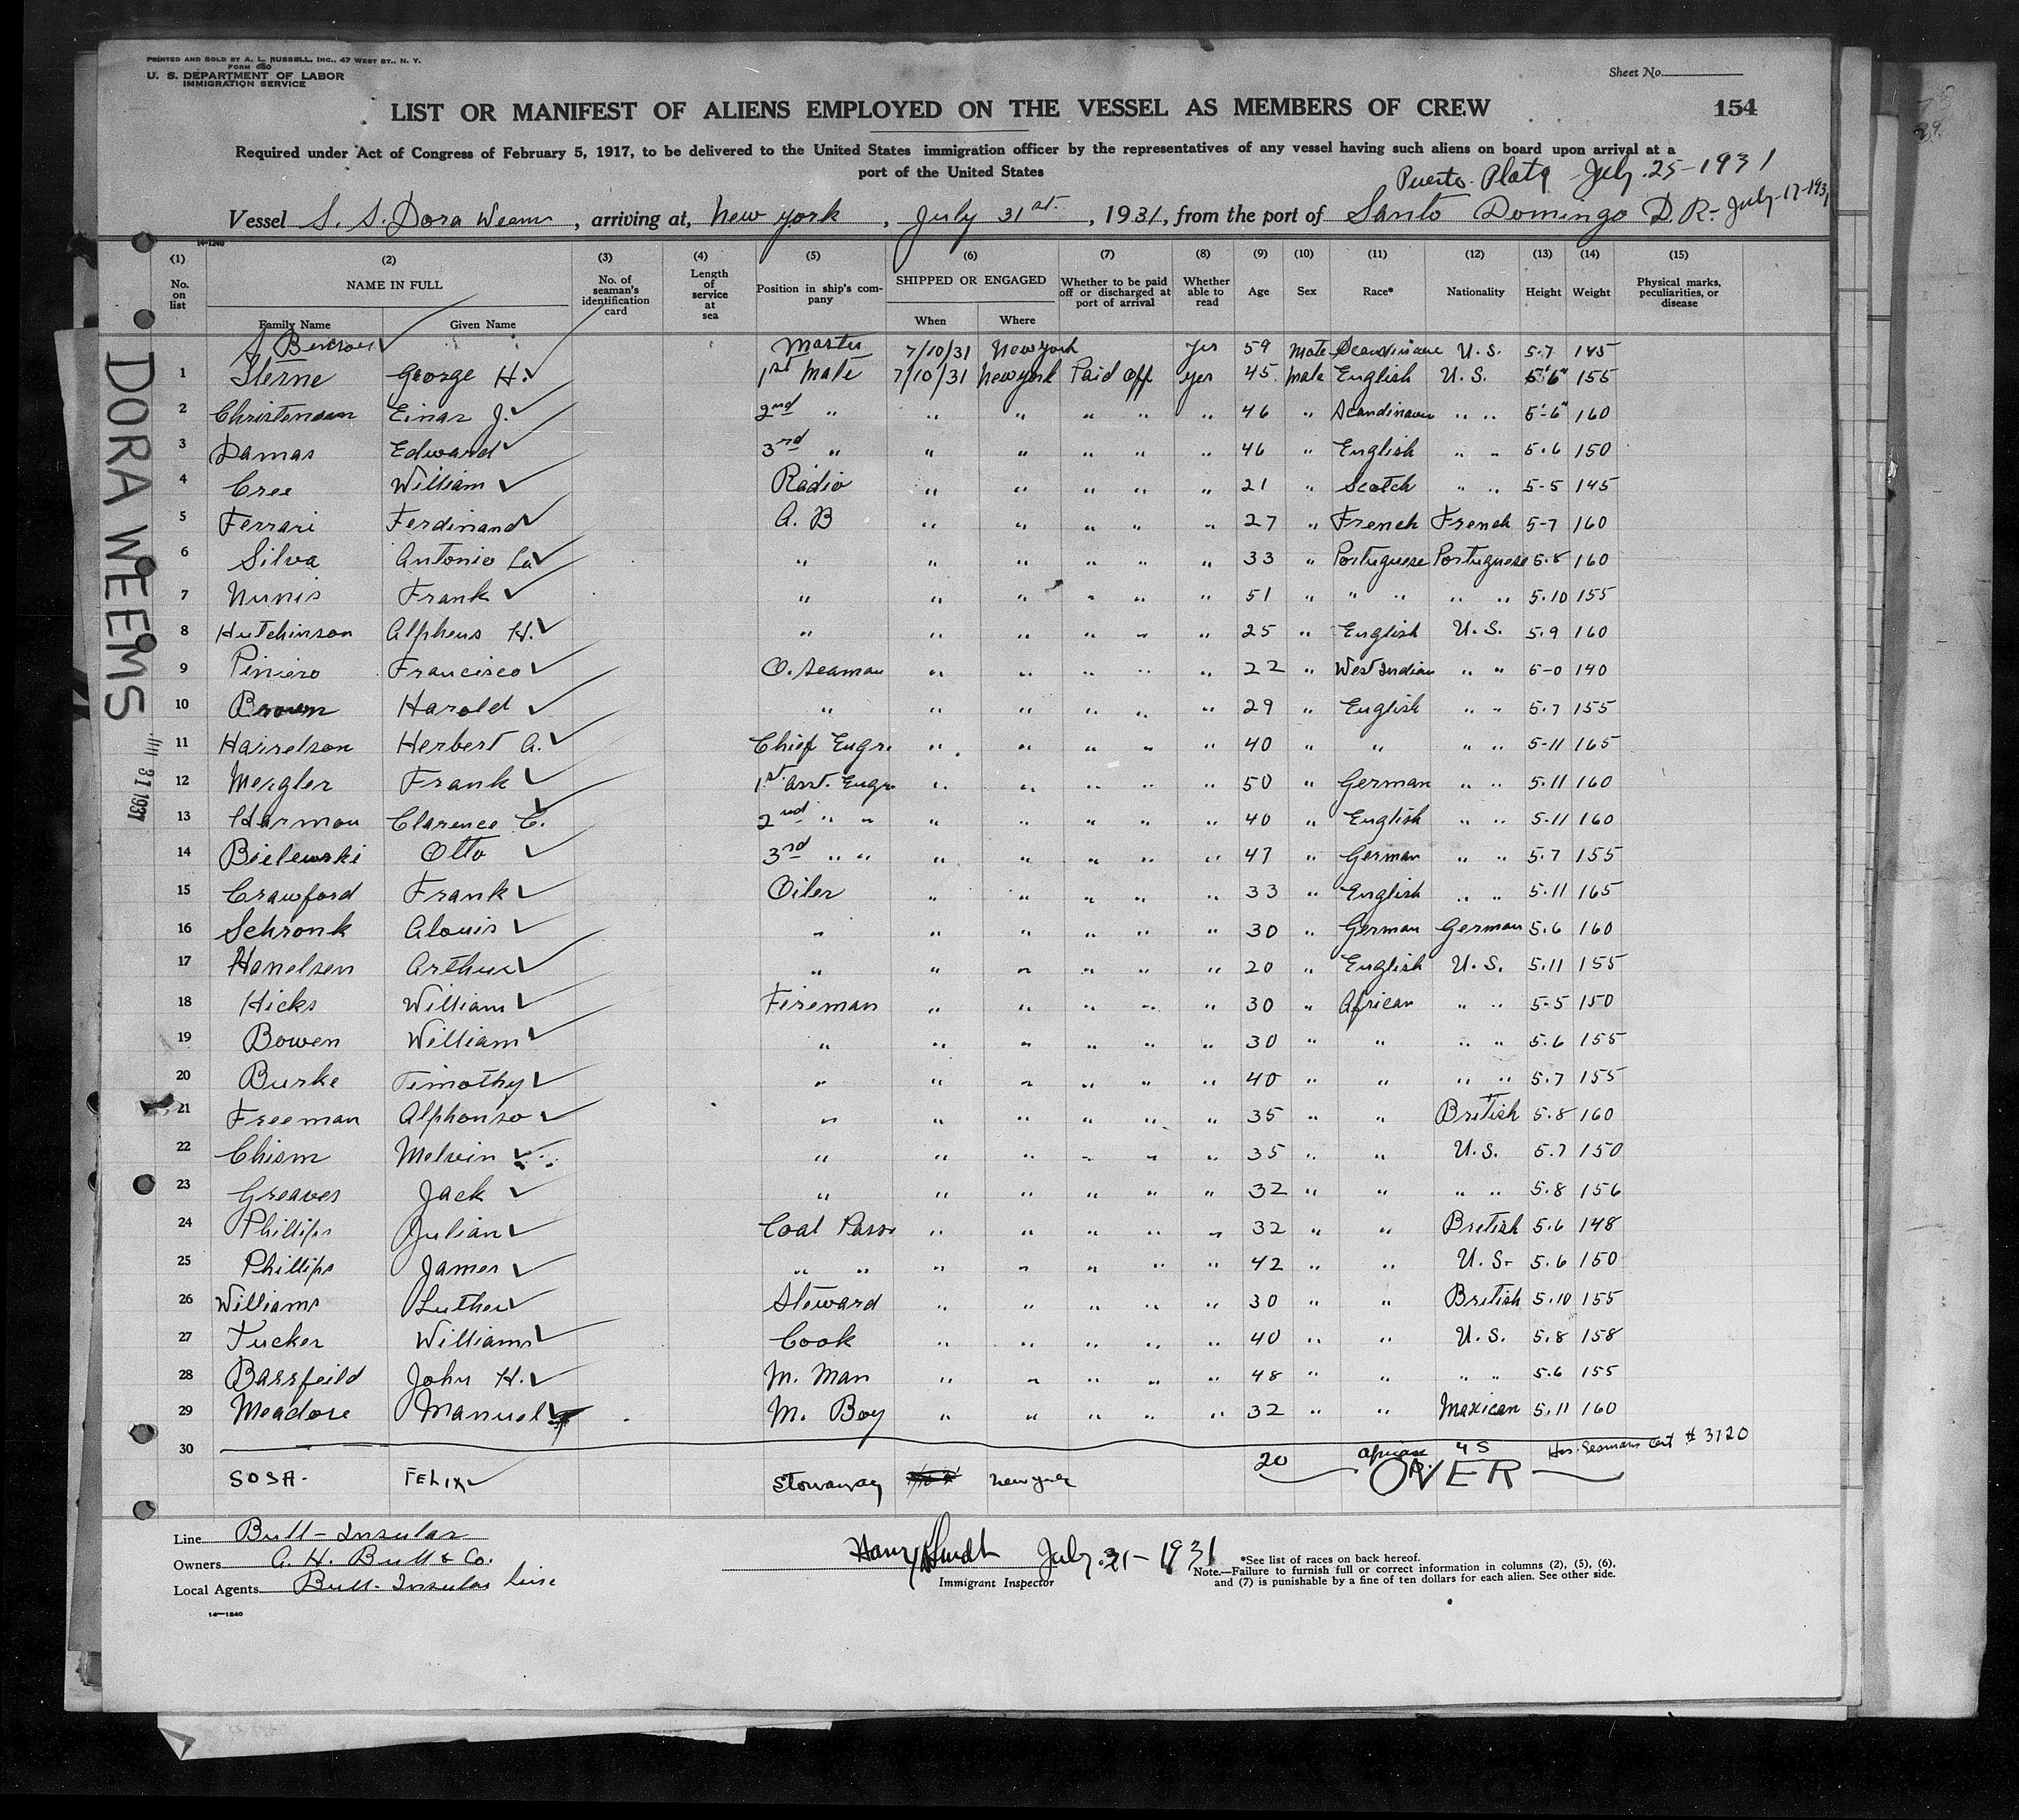 PRINTED AND SOLD BY A. L. RUSSELL, INC., 47 WEST ST., N. Y.
FORM 680
U. S. DEPARTMENT OF LABOR
IMMIGRATION SERVICE
Sheet No.
LIST OR MANIFEST OF ALIENS EMPLOYED ON THE VESSEL AS MEMBERS OF CREW
154
Required under Act of Congress of February 5, 1917, to be delivered to the United States immigration officer by the representatives of any vessel having such aliens on board upon arrival at a
port of the United States
Puerto Plata July 25-1931
Vessel S. S. Dora Weems, arriving at, New York, July 31st, 1931, from the port of Santo Domingo D. R- July-17-1931
14-1240
(1) (2) (3) (4) (5) (6) (7) (8) (9) (10) (11) (12) (13) (14) (15)
No. on list NAME IN FULL Family Name Given Name No. of seaman's identification card Length of service at sea Position in ship's company SHIPPED OR ENGAGED When Where Whether to be paid off or discharged at port of arrival Whether able to read Age Sex Race* Nationality Height Weight Physical marks, peculiarities, or disease
Master 7/10/31 New York yes 59 Male U. S. 5.7 145
1 Sterne George H. 1st Mate 7/10/31 New York Paid Off yes 45 male English U. S. 5'6" 155
2 Christensen Einar J. 2nd " " " " " " 46 " Scandinavian " " 5'-6" 160
3 Damas Edward 3rd " " " " " " 46 " English " " 5.6 150
4 Cree William Radio " " " " " 21 " Scotch " " 5-5 145
5 Ferrari Ferdinand A. B " " " " " 27 " French French 5-7 160
6 Silva Antonio La " " " " " " 33 " Portuguese Portuguese 5.8 160
7 Nunis Frank " " " " " " 51 " " " " " 5.10 155
8 Hutchinson Alpheus H. " " " " " " 25 " English U. S. 5.9 160
9 Piniero Francisco O. Seaman " " " " " 22 " West Indian " " 140
10 Brown Harold " " " " " " 29 " English " " 5.7 155
11 Harrelson Herbert A. Chief Engr. " " " " " 40 " " " " 5-11 165
12 Mergler Frank 1st Asst. Engr " " " " " 50 " German " " 5.11 160
13 Harmon Clarence C. 2nd " " " " " " " 40 " English " " 5.11 160
14 Bielewski Otto 3rd " " " " " " " 47 " German " " 5.7 155
15 Crawford Frank Oiler " " " " " 33 " English " " 5.11 165
16 Schronk Alouis " " " " " " 30 " German German 5.6 160
17 Hanelsen Arthur " " " " " " 20 " English U. S. 5.11 155
18 Hicks William Fireman " " " " " 30 " African " " 5-5 150
19 Bowen William " " " " " " 30 " " " " 5.6 155
20 Burke Timothy " " " " " " 40 " " " " 5.7 155
21 Freeman Alphonso " " " " " " 35 " " British 5.8 160
22 Chism Melvin " " " " " " 35 " " U. S. 5.7 150
23 Greaves Jack " " " " " " 32 " " " " 5.8 156
24 Phillips Julian Coal Passr " " " " " 32 " " British 5.6 148
25 Phillips James " " " " " " " 42 " " U. S. 5.6 150
26 Williams Luther Steward " " " " " 30 " " British 5.10 155
27 Tucker Williams Cook " " " " " 40 " " U. S. 5.8 158
28 Barsfeild John H. M. Man " " " " " 48 " " " " 5.6 155
29 Meadore Manuel M. Boy " " " " " 32 " " Maxican 5.11 160
30 20 African U S Has Seamans Cert # 3120
SOSA. FELIX Stowaway New York OVER
DORA WEEMS
JUL 31 1931
Line Bull-Insular
Owners A. H. Bull & Co.
Local Agents Bull-Insular Line
July 31-1931
Immigrant Inspector
*See list of races on back hereof.
Note.—Failure to furnish full or correct information in columns (2), (5), (6),
and (7) is punishable by a fine of ten dollars for each alien. See other side.
14—1240